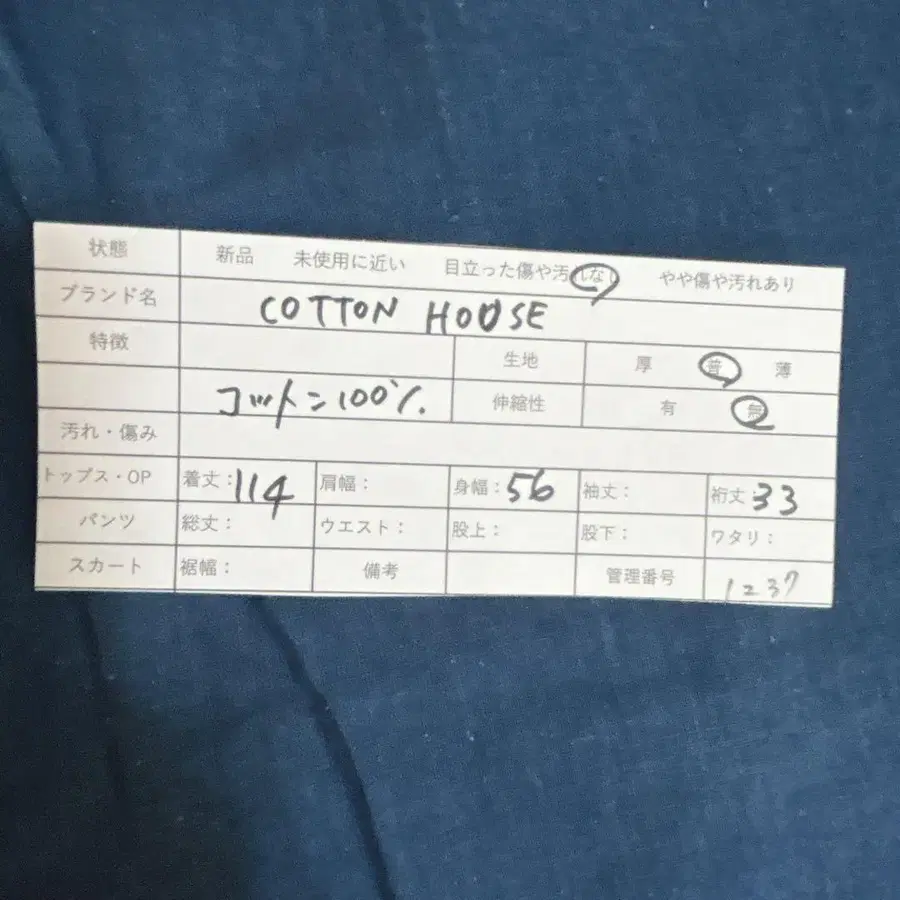 状態 新品 未使用に近い 目立った傷や汚れなし やや傷や汚れあり
ブランド名 COTTON HOUSE
特徴 生地 厚 普 薄
コットン100% 伸縮性 有 無
汚れ・傷み
トップス・OP 着丈:114 肩幅: 身幅:56 袖丈: 裄丈:33
パンツ 総丈: ウエスト: 股上: 股下: ワタリ:
スカート 裾幅: 備考 管理番号 1237